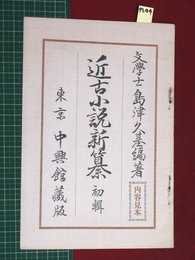 文學士島津久基編著
近古小說新纂 初輯
東京 中興館藏版
內容見本